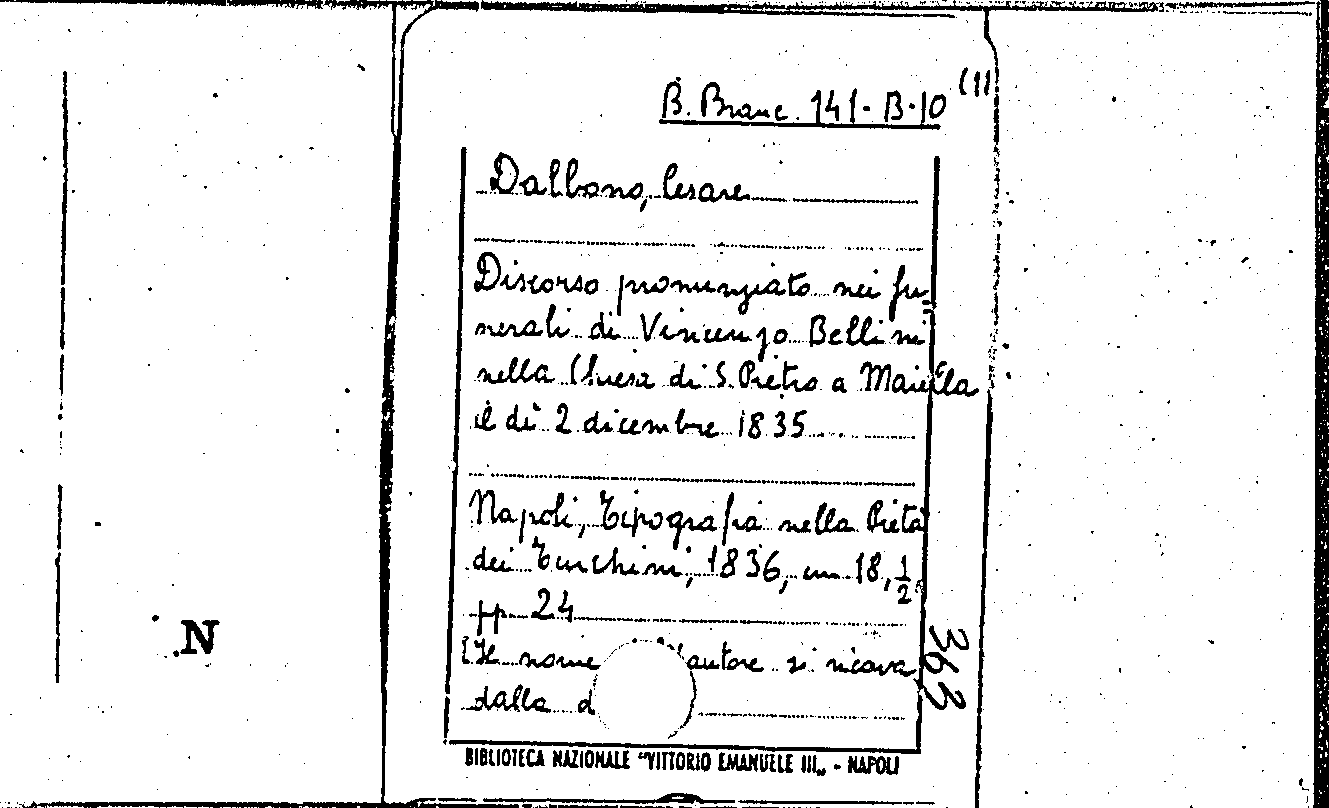 B. Branc. 141-B-10 (1)
Dalbono, Cesare
Discorso pronunziato nei fu=
nerali di Vincenzo Bellini
nella Chiesa di S. Pietro a Maiella
il dì 2 dicembre 1835
Napoli, Tipografia nella Pietà
dei Turchini, 1836, cm 18,1/2
pp. 24
[Il nome autore si ricava
dalla
363
N
BIBLIOTECA NAZIONALE "VITTORIO EMANUELE III„ - NAPOLI